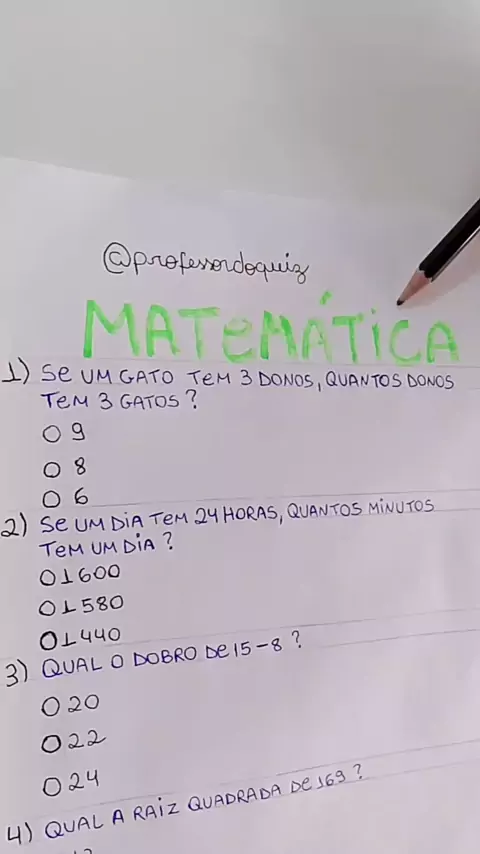 @professordoquiz
MATEMÁTICA
1) SE UM GATO TEM 3 DONOS, QUANTOS DONOS
TEM 3 GATOS?
O 9
O 8
O 6
2) SE UM DIA TEM 24 HORAS, QUANTOS MINUTOS
TEM UM DIA?
O 1600
O 1580
O 1440
3) QUAL O DOBRO DE 15-8?
O 20
O 22
O 24
4) QUAL A RAIZ QUADRADA DE 169?